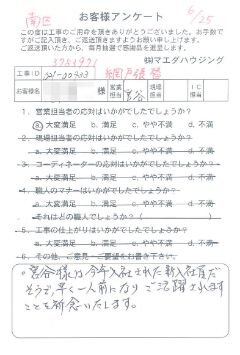 南区
お客様アンケート
6/25
この度は工事のご用命を頂きありがとうございました。お手数で
すがご記入頂き、ご返送頂きますようお願い申し上げます。
ご返送頂いた方から、毎月抽選で感謝品を進呈します。
㈱マエダハウジング
工事ID
網戸張替
お客様名
様
営業担当
宮谷
現場担当
IC担当
1. 営業担当者の応対はいかがでしたでしょうか？
a. 大変満足 b. 満足 c. やや不満 d. 不満
2. 現場担当者の応対はいかがでしたでしょうか？
a. 大変満足 b. 満足 c. やや不満 d. 不満
3. コーディネーターの応対はいかがでしたでしょうか？
a. 大変満足 b. 満足 c. やや不満 d. 不満
4. 職人のマナーはいかがでしたでしょうか？
a. 大変満足 b. 満足 c. やや不満 d. 不満
それはどの職人でしょうか？
5. 工事の仕上がりはいかがでしたでしょうか？
a. 大変満足 b. 満足 c. やや不満 d. 不満
6. その他、ご意見・ご要望をお書き下さい。
宮谷様は今年入社された新入社員だ
そうで、早く一人前になり ご活躍されます
ことを祈念いたします。